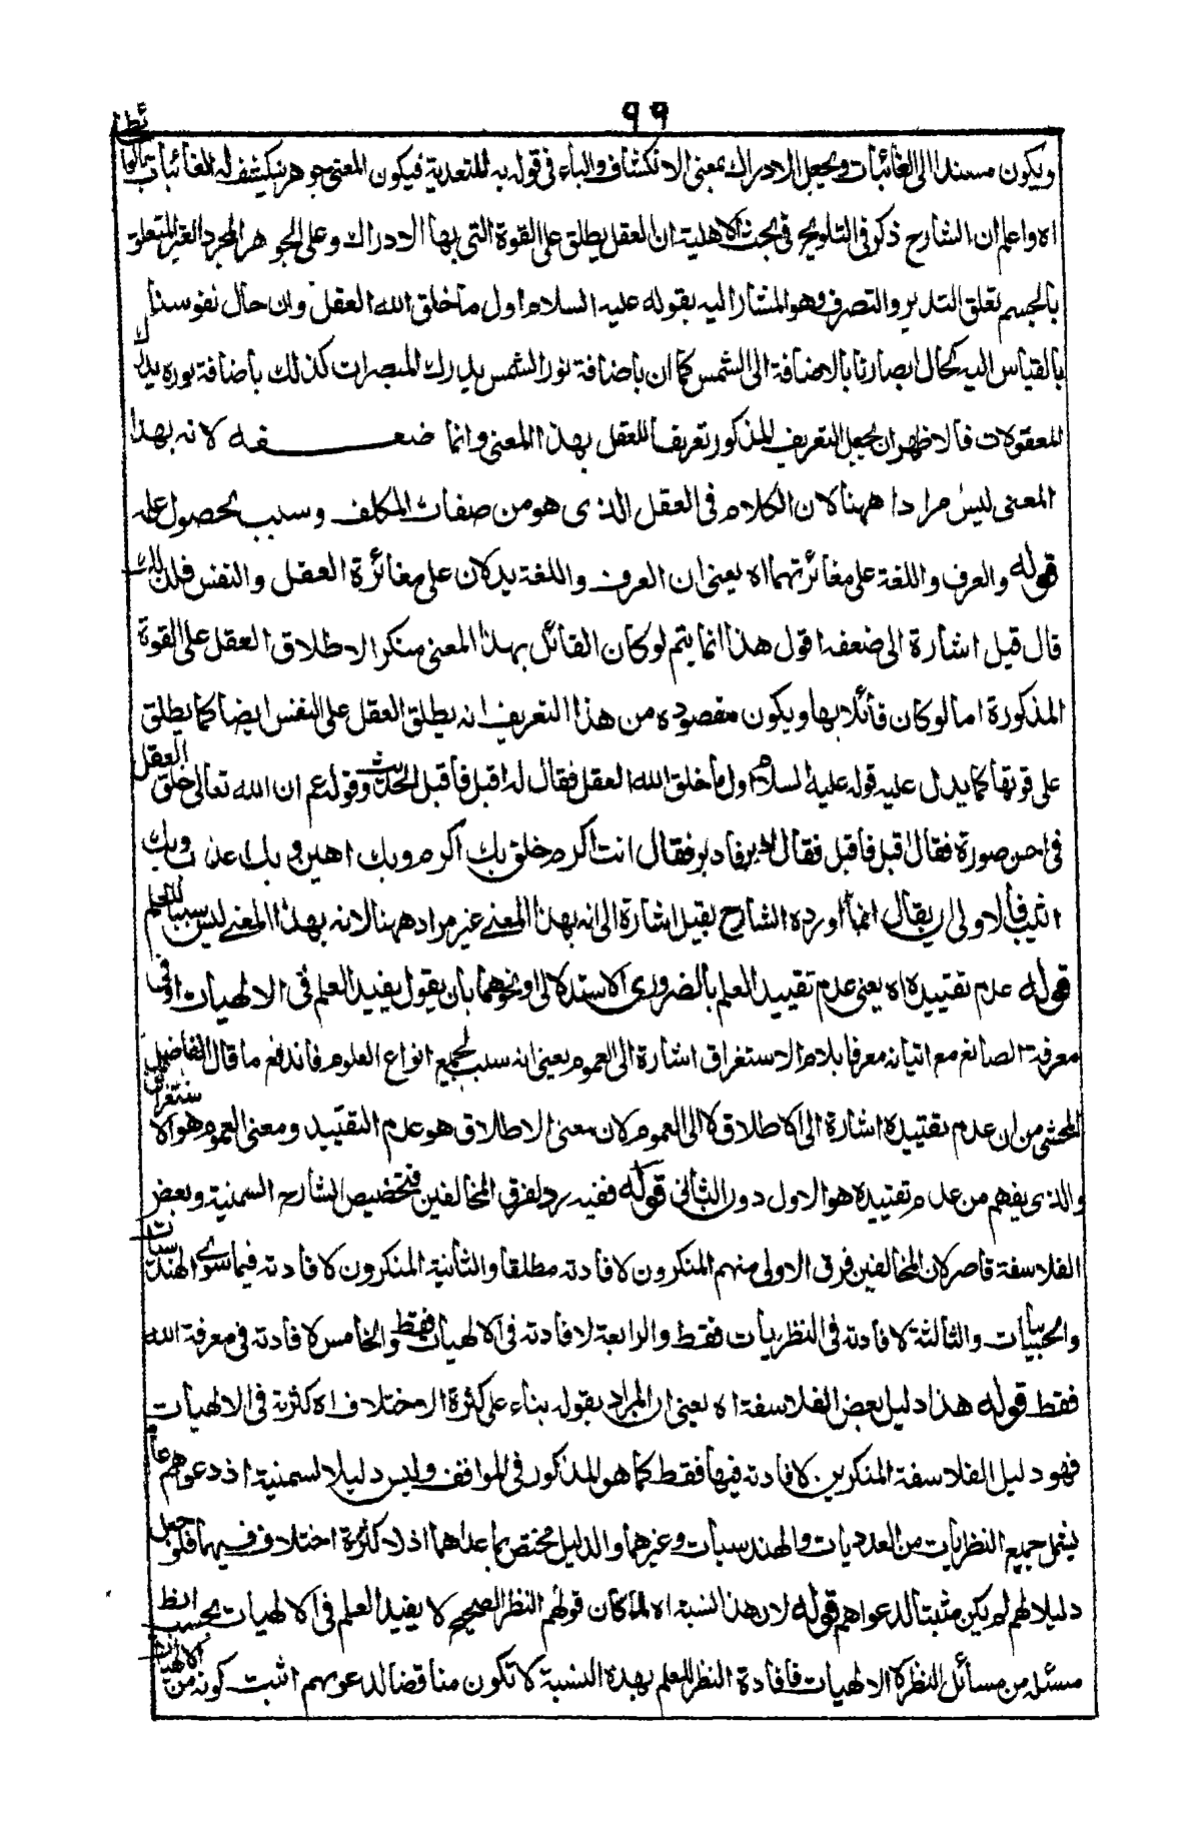 ٩٩
ويكون مسندا الى الغائبات ويجعل الادراك بمعنى الانكشاف والباء فى قوله به للتعدية فيكون المعنى جوهر ينكشف له الغائبات بالوسائط
اه واعلم ان الشارح ذكر فى التلويح فى بحث الاهلية ان العقل يطلق على القوة التى بها الادراك وعلى الجوهر المجرد الغير المتعلق
بالجسم تعلق التدبير والتصرف وهو المشار اليه بقوله عليه السلام اول ما خلق الله العقل وان حال نفوسنا
بالقياس اليه كحال ابصارنا بالاضافة الى الشمس كما ان باضافة نور الشمس يدرك المبصرات كذلك باضافة نوره يدرك
المعقولات فالاظهر ان يجعل التعريف المذكور تعريفا للعقل بهذا المعنى وانما ضعفه لانه بهذا
المعنى ليس مرادا ههنا لان الكلام فى العقل الذى هو من صفات المكلف وسبب لحصول علمه
قوله والعرف واللغة على مغائرتهما اه يعنى ان العرف واللغة يدلان على مغائرة العقل والنفس فلذلك
قال قيل اشارة الى ضعفه اقول هذا انما يتم لو كان القائل بهذا المعنى منكرا لاطلاق العقل على القوة
المذكورة اما لو كان قائلا بها ويكون مقصوده من هذا التعريف انه يطلق العقل على النفس ايضا كما يطلق
على قوتها كما يدل عليه قوله عليه السلام اول ما خلق الله العقل فقال له اقبل فاقبل الحديث وقوله عم ان الله تعالى خلق العقل
فى احسن صورة فقال اقبل فاقبل فقال ادبر فادبر فقال انت اكرم خلق بك اكرم وبك اهين وبك اعذب وبك
اثيب فالاولى ان يقال انما اورده الشارح بقيل اشارة الى انه بهذا المعنى غير مراد ههنا لانه بهذا المعنى ليس سببا للعلم
قوله عدم تقييده اه يعنى عدم تقييد العلم بالضرورى او الاستدلالى او نحوهما بان يقول يفيد العلم فى الالهيات او فى
معرفة الصانع مع اتيانه معرفا بلام الاستغراق اشارة الى العموم يعنى انه سبب لجميع انواع العلوم فاندفع ما قال الفاضل
المحشى من ان عدم تقييده اشارة الى الاطلاق لا الى العموم لان معنى الاطلاق هو عدم التقييد ومعنى العموم هو الاستغراق
والذى يفهم من عدم تقييده هو الاول دون الثانى قوله ففيه رد لفرق المخالفين فتخصيص الشارح السمنية وبعض
الفلاسفة قاصر لان المخالفين فرق الاولى منهم المنكرون لافادته مطلقا والثانية المنكرون لافادته فيما سوى الهندسيات
والحسبيات والثالثة لافادته فى النظريات فقط والرابعة لافادته فى الالهيات فقط والخامس لافادته فى معرفة الله
فقط قوله هذا دليل بعض الفلاسفة اه يعنى ان المراد بقوله بناء على كثرة الاختلاف اه كثرته فى الالهيات
فهو دليل الفلاسفة المنكرين لافادته فيها فقط كما هو المذكور فى المواقف وليس دليلا لسمنية اذ دعواهم عام
يشمل جميع النظريات من العدديات والهندسيات وغيرهما والدليل مختص بما عداهما اذ لا كثرة اختلاف فيهما فلو جعل
دليلا لهم لم يكن مثبتا لدعواهم قوله لان هذا النسبة اه لما كان قولهم النظر الصحيح لا يفيد العلم فى الالهيات بحسب الظ
مسئلة من مسائل النظر لا الالهيات فافادة النظر للعلم بهذه النسبة لا تكون مناقضا لدعويهم اثبت كونه من الالهيات